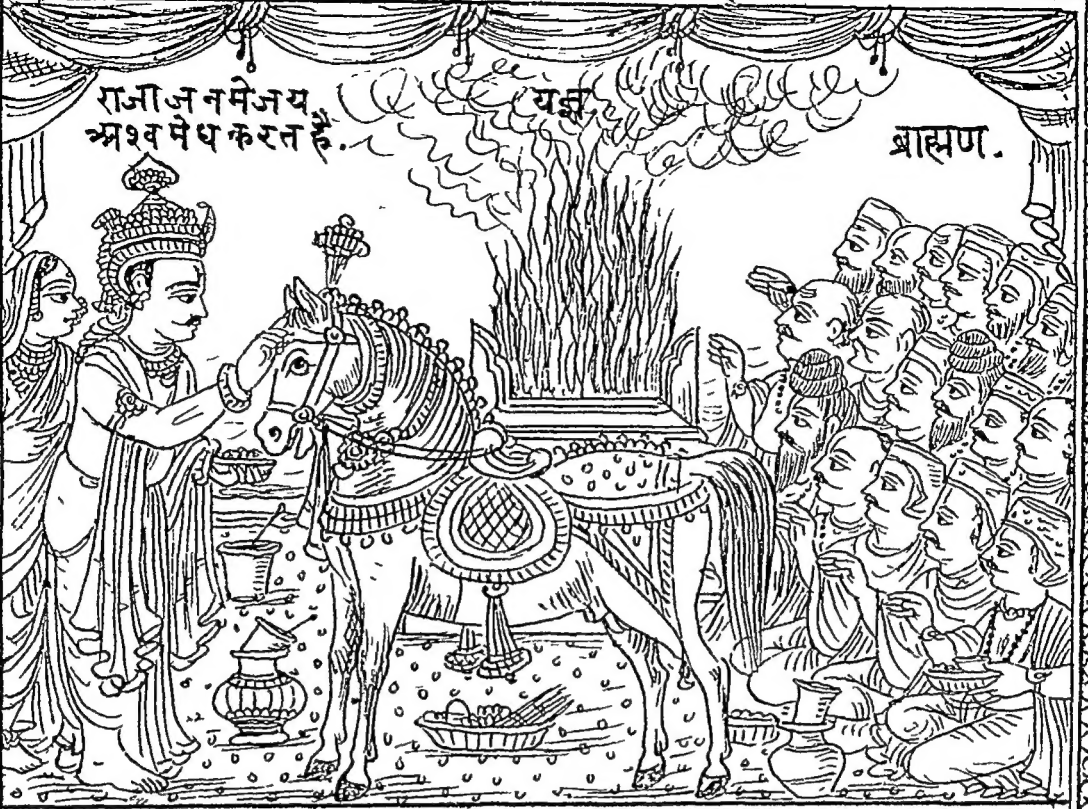 राजा जनमेजय
अश्वमेध करत है.
यज्ञ
ब्राह्मण.